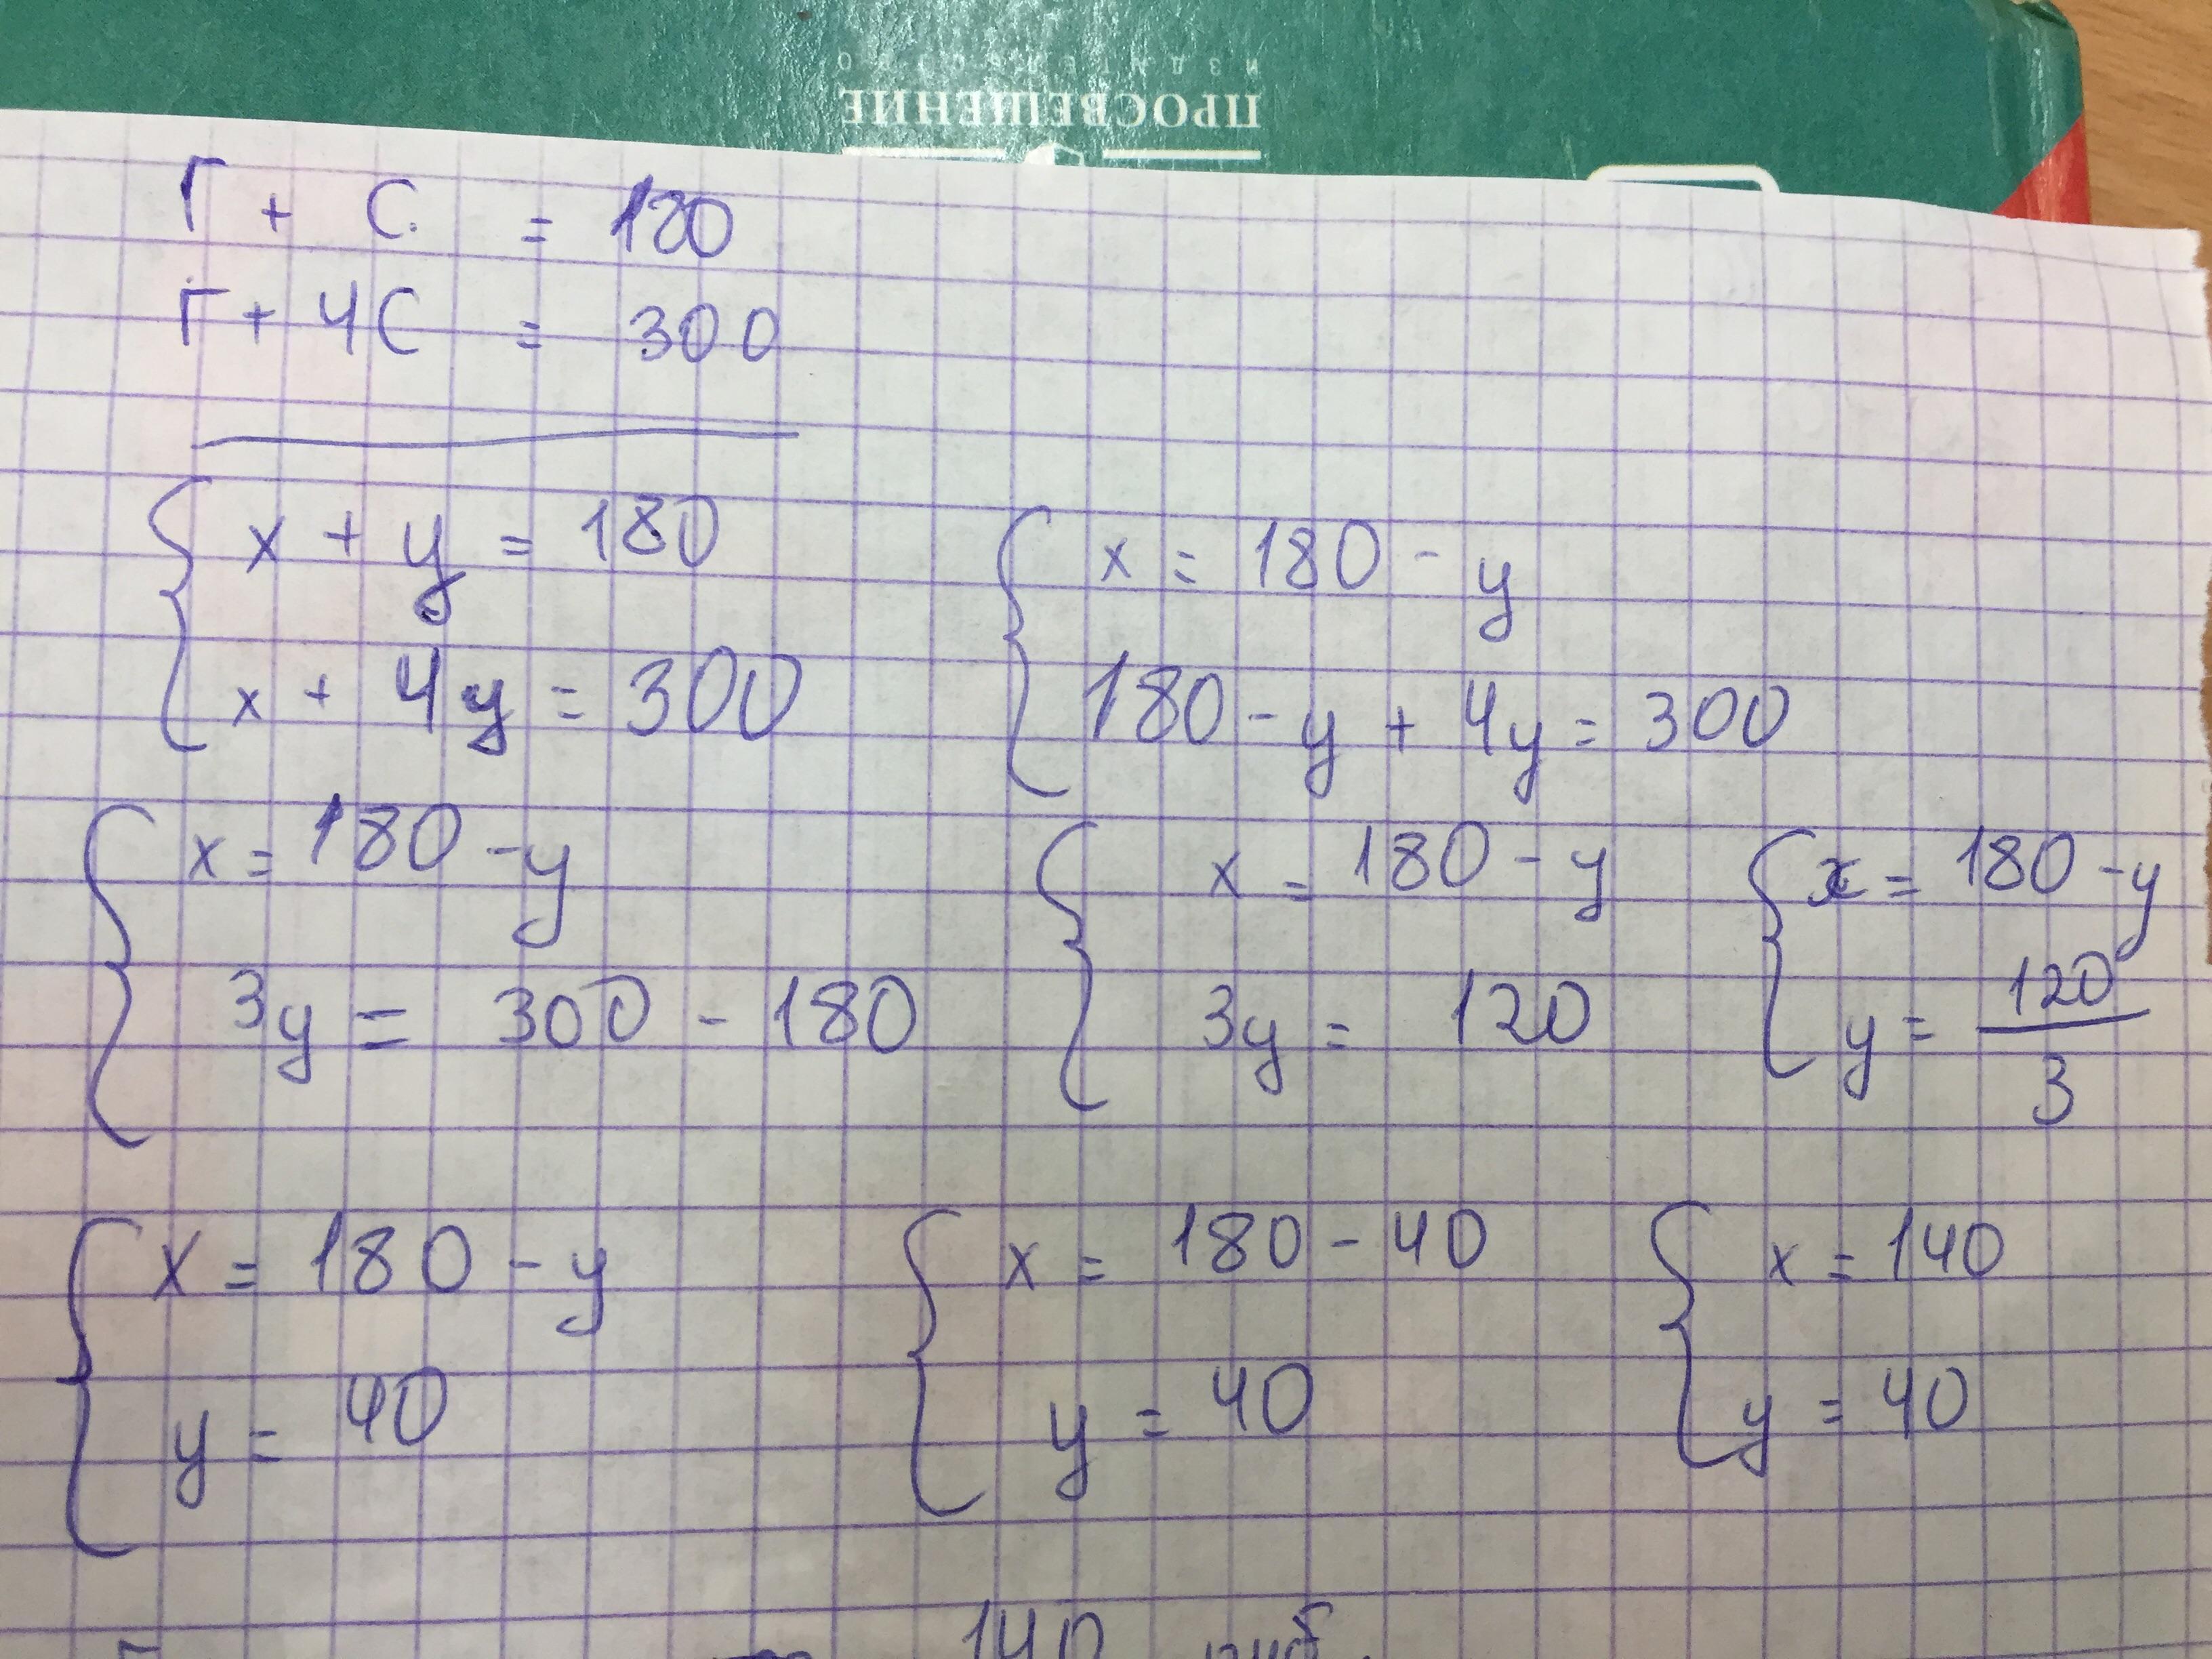 ИЗДАТЕЛЬСТВО
ПРОСВЕЩЕНИЕ
Г + С = 180
Г + 4С = 300
x + y = 180
x + 4y = 300
x = 180 - y
180 - y + 4y = 300
x = 180 - y
3y = 300 - 180
x = 180 - y
3y = 120
x = 180 - y
y = 120/3
x = 180 - y
y = 40
x = 180 - 40
y = 40
x = 140
y = 40
140 руб.